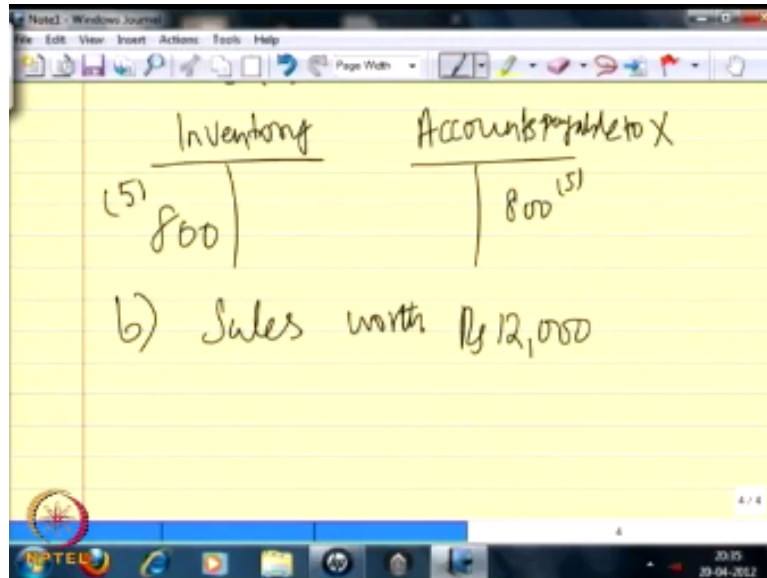 Note1 - Windows Journal
File Edit View Insert Actions Tools Help
Page Width
Inventory Accounts payable to X
(5) 800 800 (5)
6) Sales worth Rs 12,000
4 / 4
4
NPTEL
20:35
20-04-2012